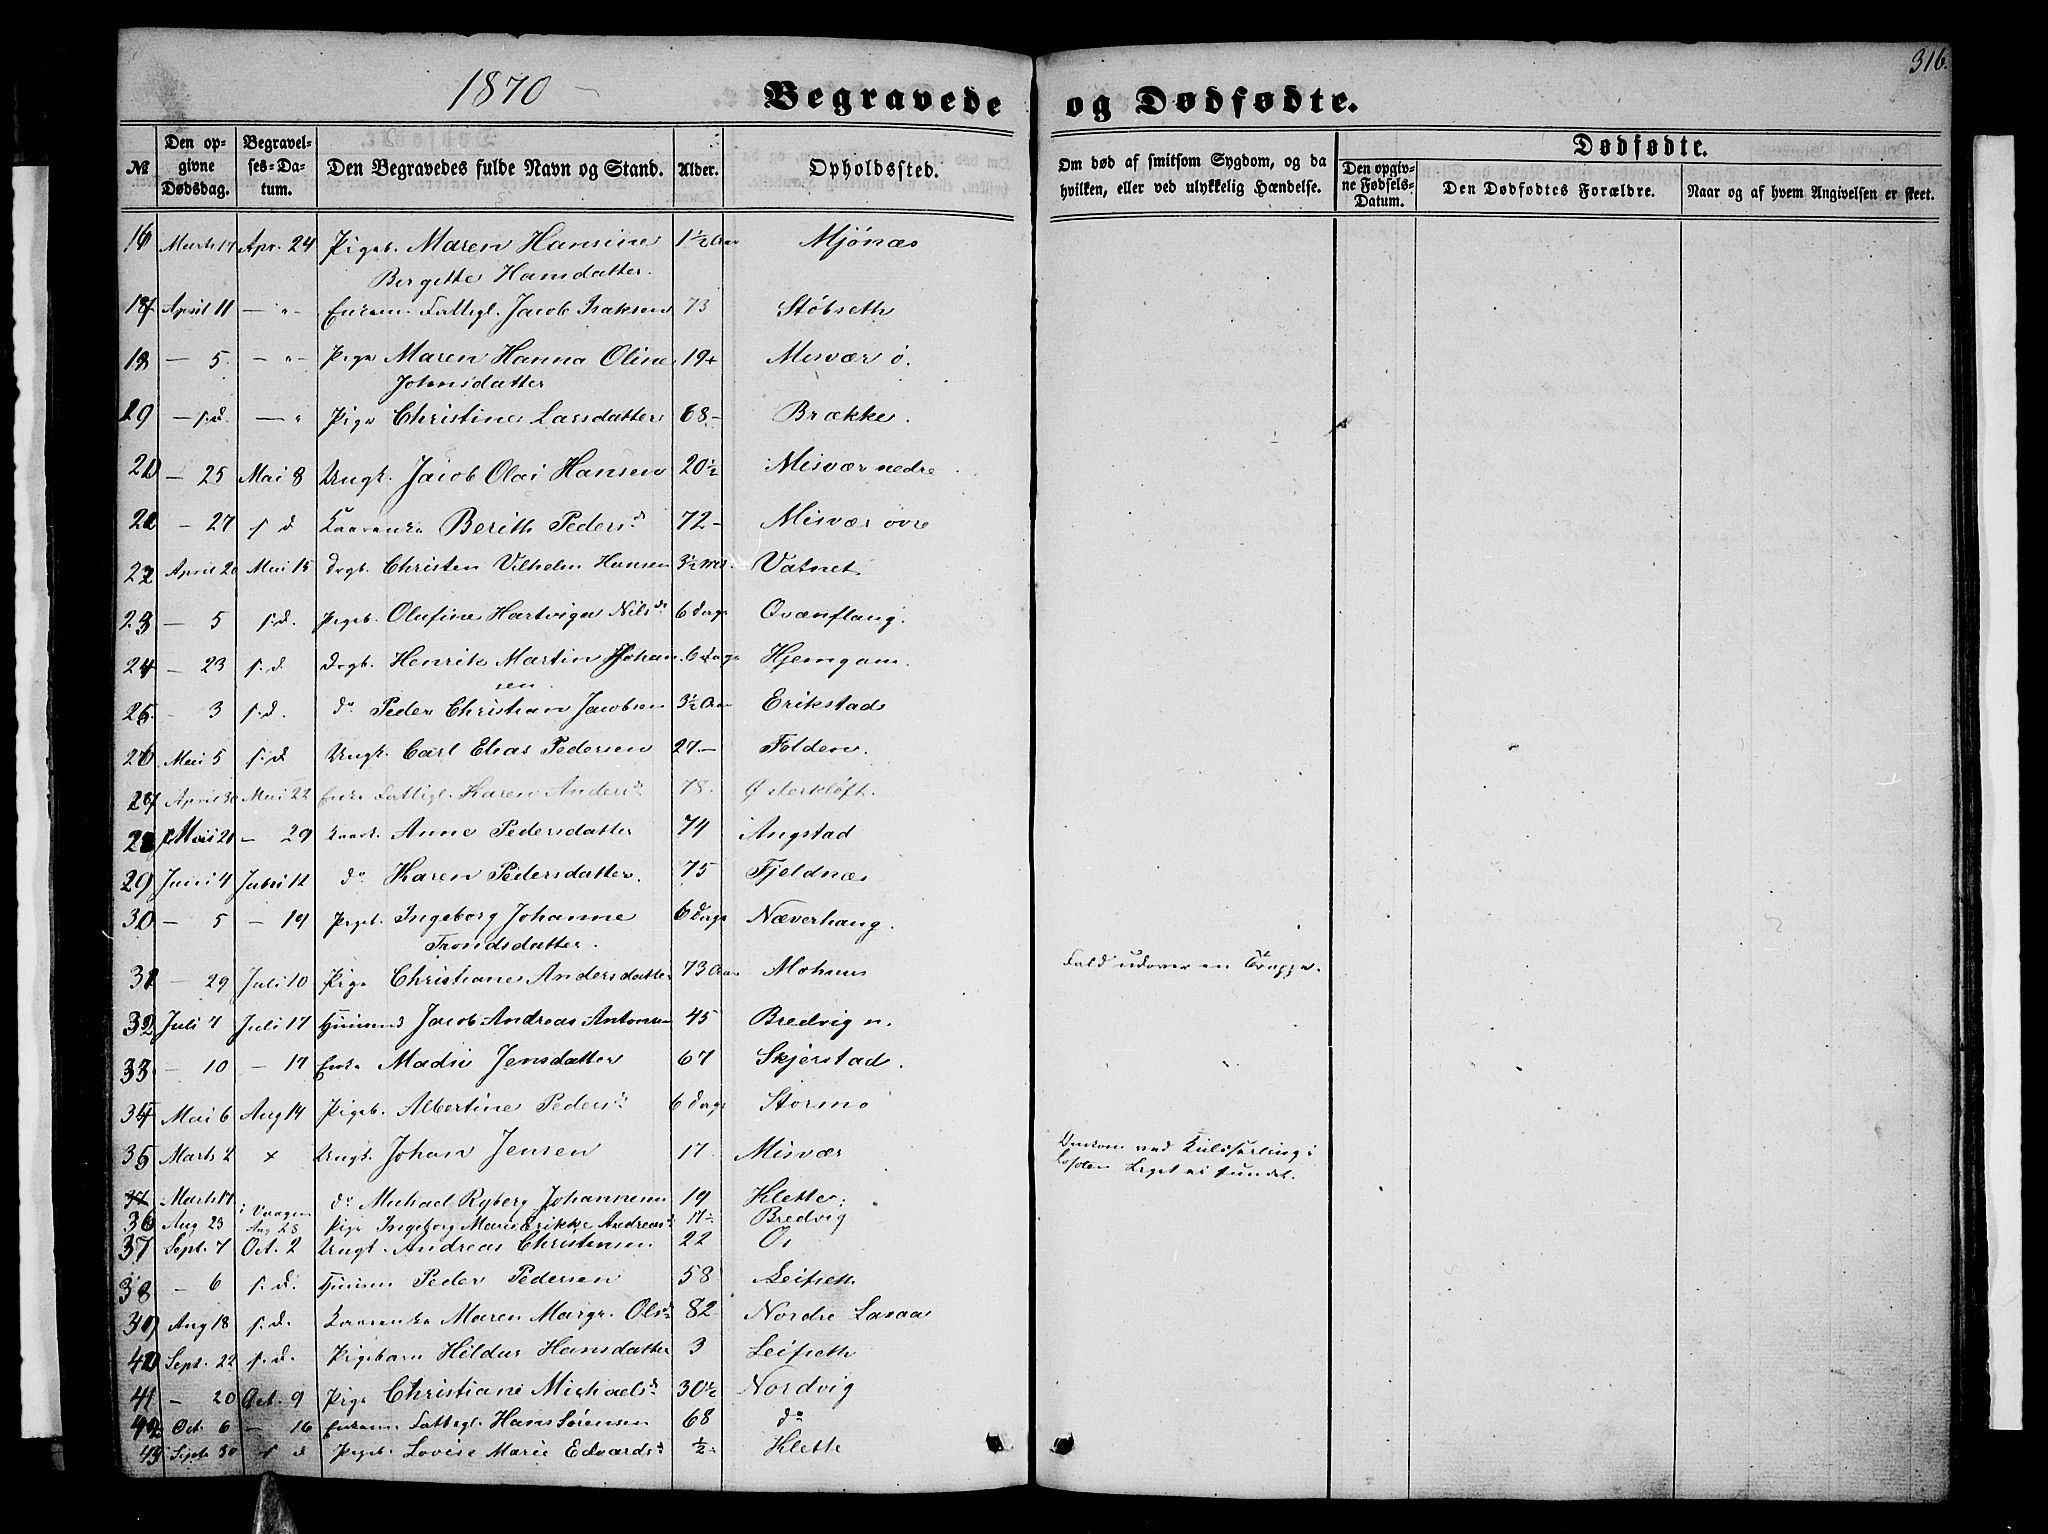 316.
1870 –
Begravede og Dødfødte.
№ Den opgivne Dødsdag. Begravelses-Datum. Den Begravedes fulde Navn og Stand. Alder. Opholdssted. Om død af smitsom Sygdom, og da hvilken, eller ved ulykkelig Hændelse. Dødfødte. Den opgivne Fødsels-Datum. Den Dødfødtes Forældre. Naar og af hvem Angivelsen er skeet.
16 Marts 17 Apr. 24 Pigeb. Maren Hansine 1½ Aar Mjönæs
Bergette Hansdatter.
17 April 11 — " — Enkem. Fattigl. Jacob Isaksen 73 Stöbseth
18 — 5. — " — Pige Maren Hanna Oline 19 Misvær ö.
Johnsdatter
19 — s.d. — " Pige Christine Larsdatter 68 – Brække.
20 — 25 Mai 8 Ungk. Jacob Olai Hansen 20½ Misvær nedre
21 — 27 s d Kaarenke Berith Peders d. 72 – Misvær övre
22 April 20 Mai 15 Drgb. Christen Vilhelm Hansen 3½ Vatnet
23 — 5 s.d. Pigeb. Olufine Hartviga Nils d. 6 Dage Qvænflaug.
24 — 23 s.d. Drgb. Henrik Martin Johan 6 Dage Hjemgam.
sen
25 — 3 s.d. do Peder Christian Jacobsen 3½ Aar Erikstad
26 Mai 5 s.d Ungk. Carl Elias Pedersen 27. – Folden.
27 April 30 Mai 22 Enke Fattigl. Karen Anders d. 78. Österklöft.
28 Mai 21 — 29 Kaark. Anne Pedersdatter 74 Angstad
29 Juni 4 Juni 12 do Karen Pedersdatter. 75 Fjeldnæs
30 — 5 — 19 Pigeb. Ingeborg Johanne 6 Dage Næverhaug.
Trondsdatter.
31 — 29 Juli 10 Pige Christiane Andersdatter 73 Aar Mohus Fald udover en Trappe.
32 Juli 7 Juli 17 Huusmd Jacob Andreas Antonsen 45 Bredvig n.
33 — 10 — 17 Enke Madsi Jensdatter 67 Skjerstad.
34 Mai 6 Aug 14 Pigeb. Albertine Peders d. 6 Dage Stormo
35 Marts 2 x Ungk. Johan Jensen 17 Misvær Omkom ved Kuldseiling i
Lofoten Liget ei fundet.
Marts 17 i Vaagen do Michael Ryberg Johannesen 19 Klette.
36 Aug 23 Aug 28 Pige Ingeborg Marie Erikke Andreas d. Bredvig
37 Sept. 7 Oct. 2 Ungk. Andreas Christensen 22 Os
38 — 6 s.d. Huusm Peder Pedersen 58 Leifseth
39 Aug 18 s.d. Kaarenke Maren Margr. Ols d. 82 Nordre Laxaa
40 Sept. 22 s.d. Pigebarn Hildur Hansdatter 3 Leifseth
41 — 20 Oct. 9 Pige Christiane Michaels d. 30½ Nordvig
42 Oct. 6 — 16 Enkem Fattigl. Hans Sörensen 68 do
43 Septb 30 s d Pigeb. Lovise Marie Edvards d. ½ Klette